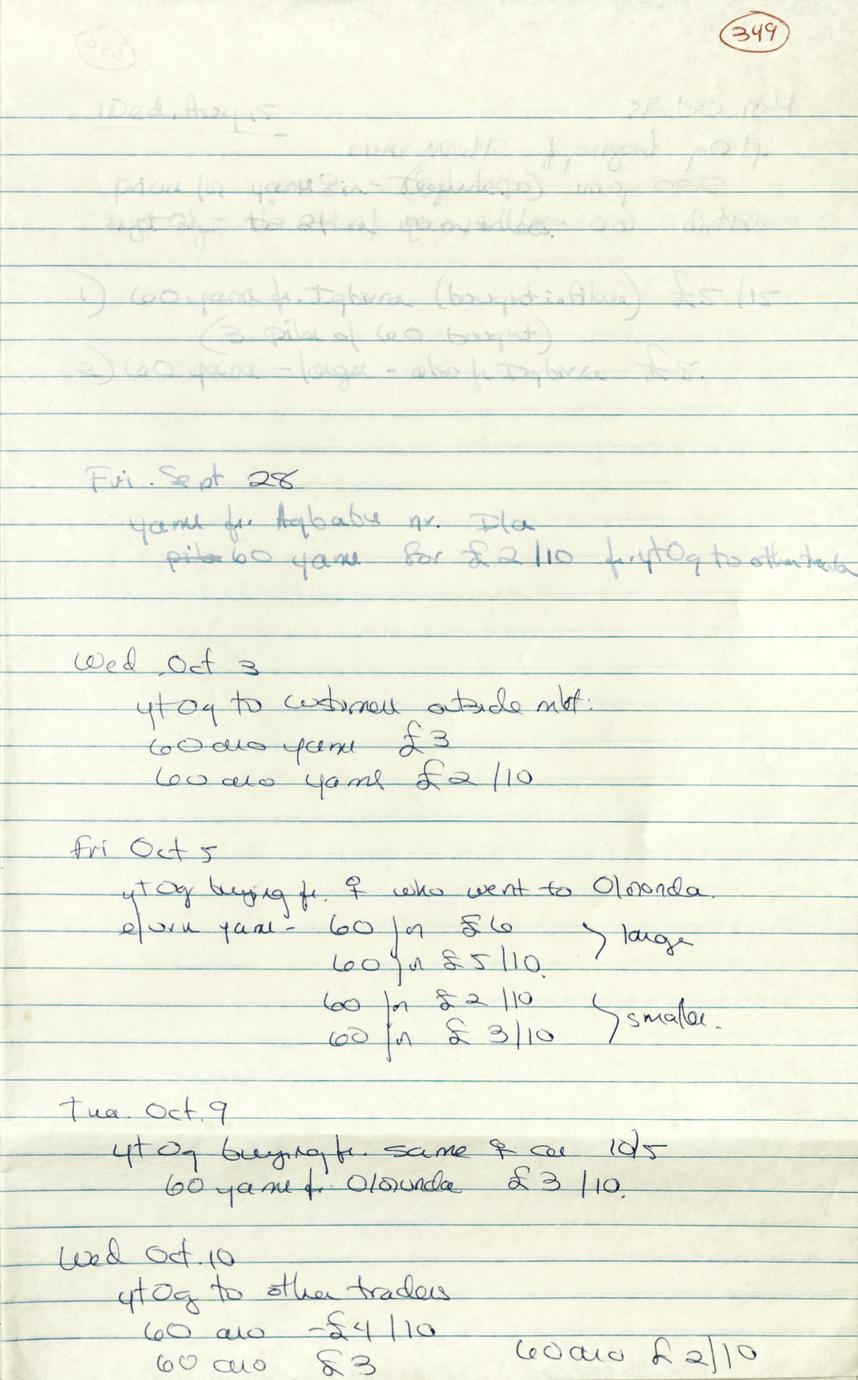 349
Fri. Sept 28
yams fr. Agbabu nr. Ila
60 yams for £2/10 fr. ytOg to other traders
Wed Oct 3
ytOg to customers outside mkt:
60 aro yams £3
60 aro yams £2/10
Fri Oct 5
ytOg buying fr. ♀ who went to Olorunda.
efuru yams - 60 for £6
60 for £5/10
} large
60 for £2/10
60 for £3/10
} smaller.
Tue. Oct. 9
ytOg buying fr. same ♀ as 10/5
60 yams fr. Olorunda £3/10.
Wed Oct. 10
ytOg to other traders
60 aro - £4/10
60 aro £3 60 aro £2/10